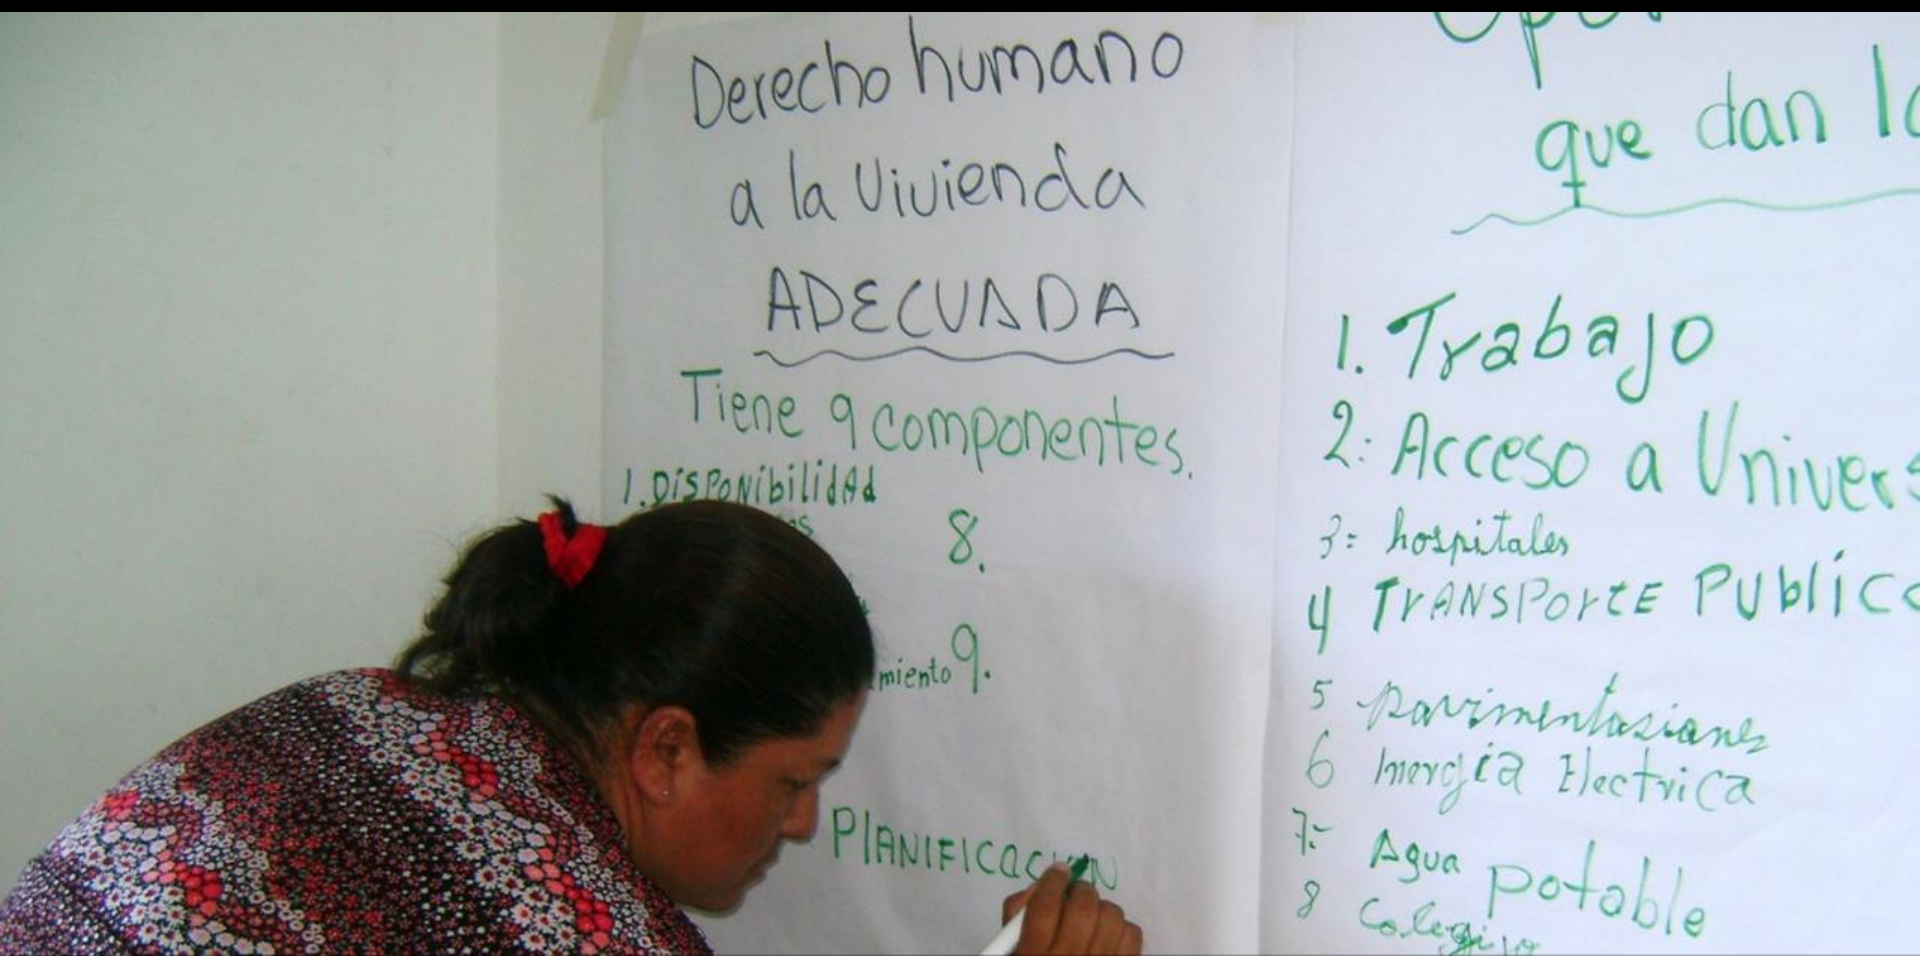 Derecho humano
a la Vivienda
ADECUADA
Tiene 9 componentes.
1. DISPONibilidAd
8.
miento 9.
PlANIFICaCION
que dan
1. Trabajo
2: Acceso a
3= hospitales
4 TrANSPOrtE PUblic
5 pavimentasiones
6 Inergia Electrica
7:- Agua potable
8